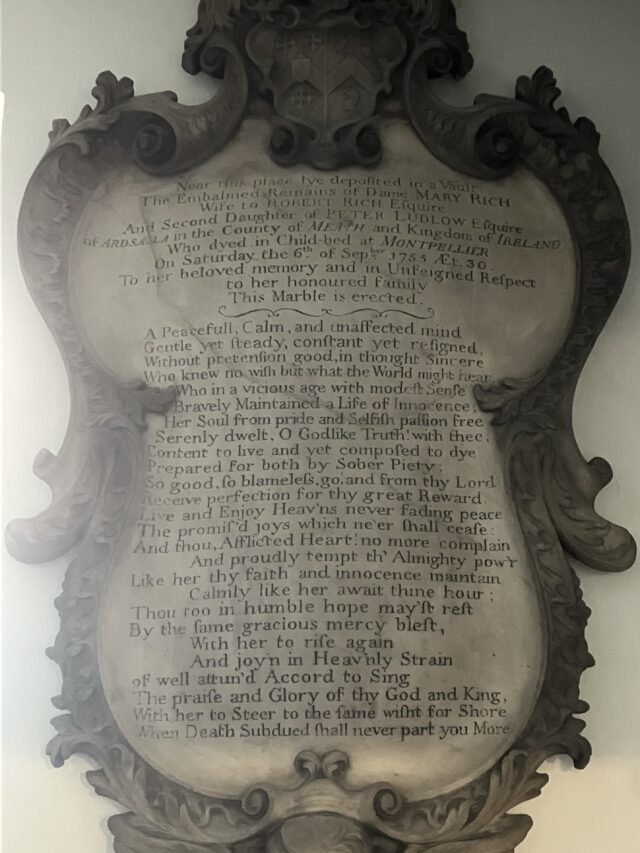 Near this place lye depoſited in a Vault
The Embalmed Remains of Dame MARY RICH
Wife to ROBERT RICH Eſquire
And Second Daughter of PETER LUDLOW Eſquire
Of ARDSALLA in the County of MEATH and Kingdom of IRELAND
Who dyed in Child-bed at MONTPELLIER
On Saturday the 6th of Sepber 1755 Æt. 30
To her beloved memory and in Unfeigned Reſpect
to her honoured family
This Marble is erected.
A Peacefull, Calm, and unaffected mind
Gentle yet ſteady, conſtant yet reſigned,
Without pretenſion good, in thought Sincere
Who knew no wiſh but what the World might hear
Who in a vicious age with modeſt Senſe
Bravely Maintained a Life of Innocence;
Her Soul from pride and Selfiſh paſſion free
Serenly dwelt, O Godlike Truth! with thee:
Content to live and yet compoſed to dye
Prepared for both by Sober Piety;
So good, ſo blameleſs, go! and from thy Lord
Receive perfection for thy great Reward.
Live and Enjoy Heav'ns never fading peace
The promiſ'd joys which ne'er ſhall ceaſe:
And thou, Afflicted Heart! no more complain
And proudly tempt th' Almighty pow'r
Like her thy faith and innocence maintain
Calmly like her await thine hour;
Thou too in humble hope may'ſt reſt
By the ſame gracious mercy bleſt,
With her to riſe again
And joyn in Heav'nly Strain
of well attun'd Accord to Sing
The praiſe and Glory of thy God and King,
With her to Steer to the ſame wiſht for Shore
When Death Subdued ſhall never part you More